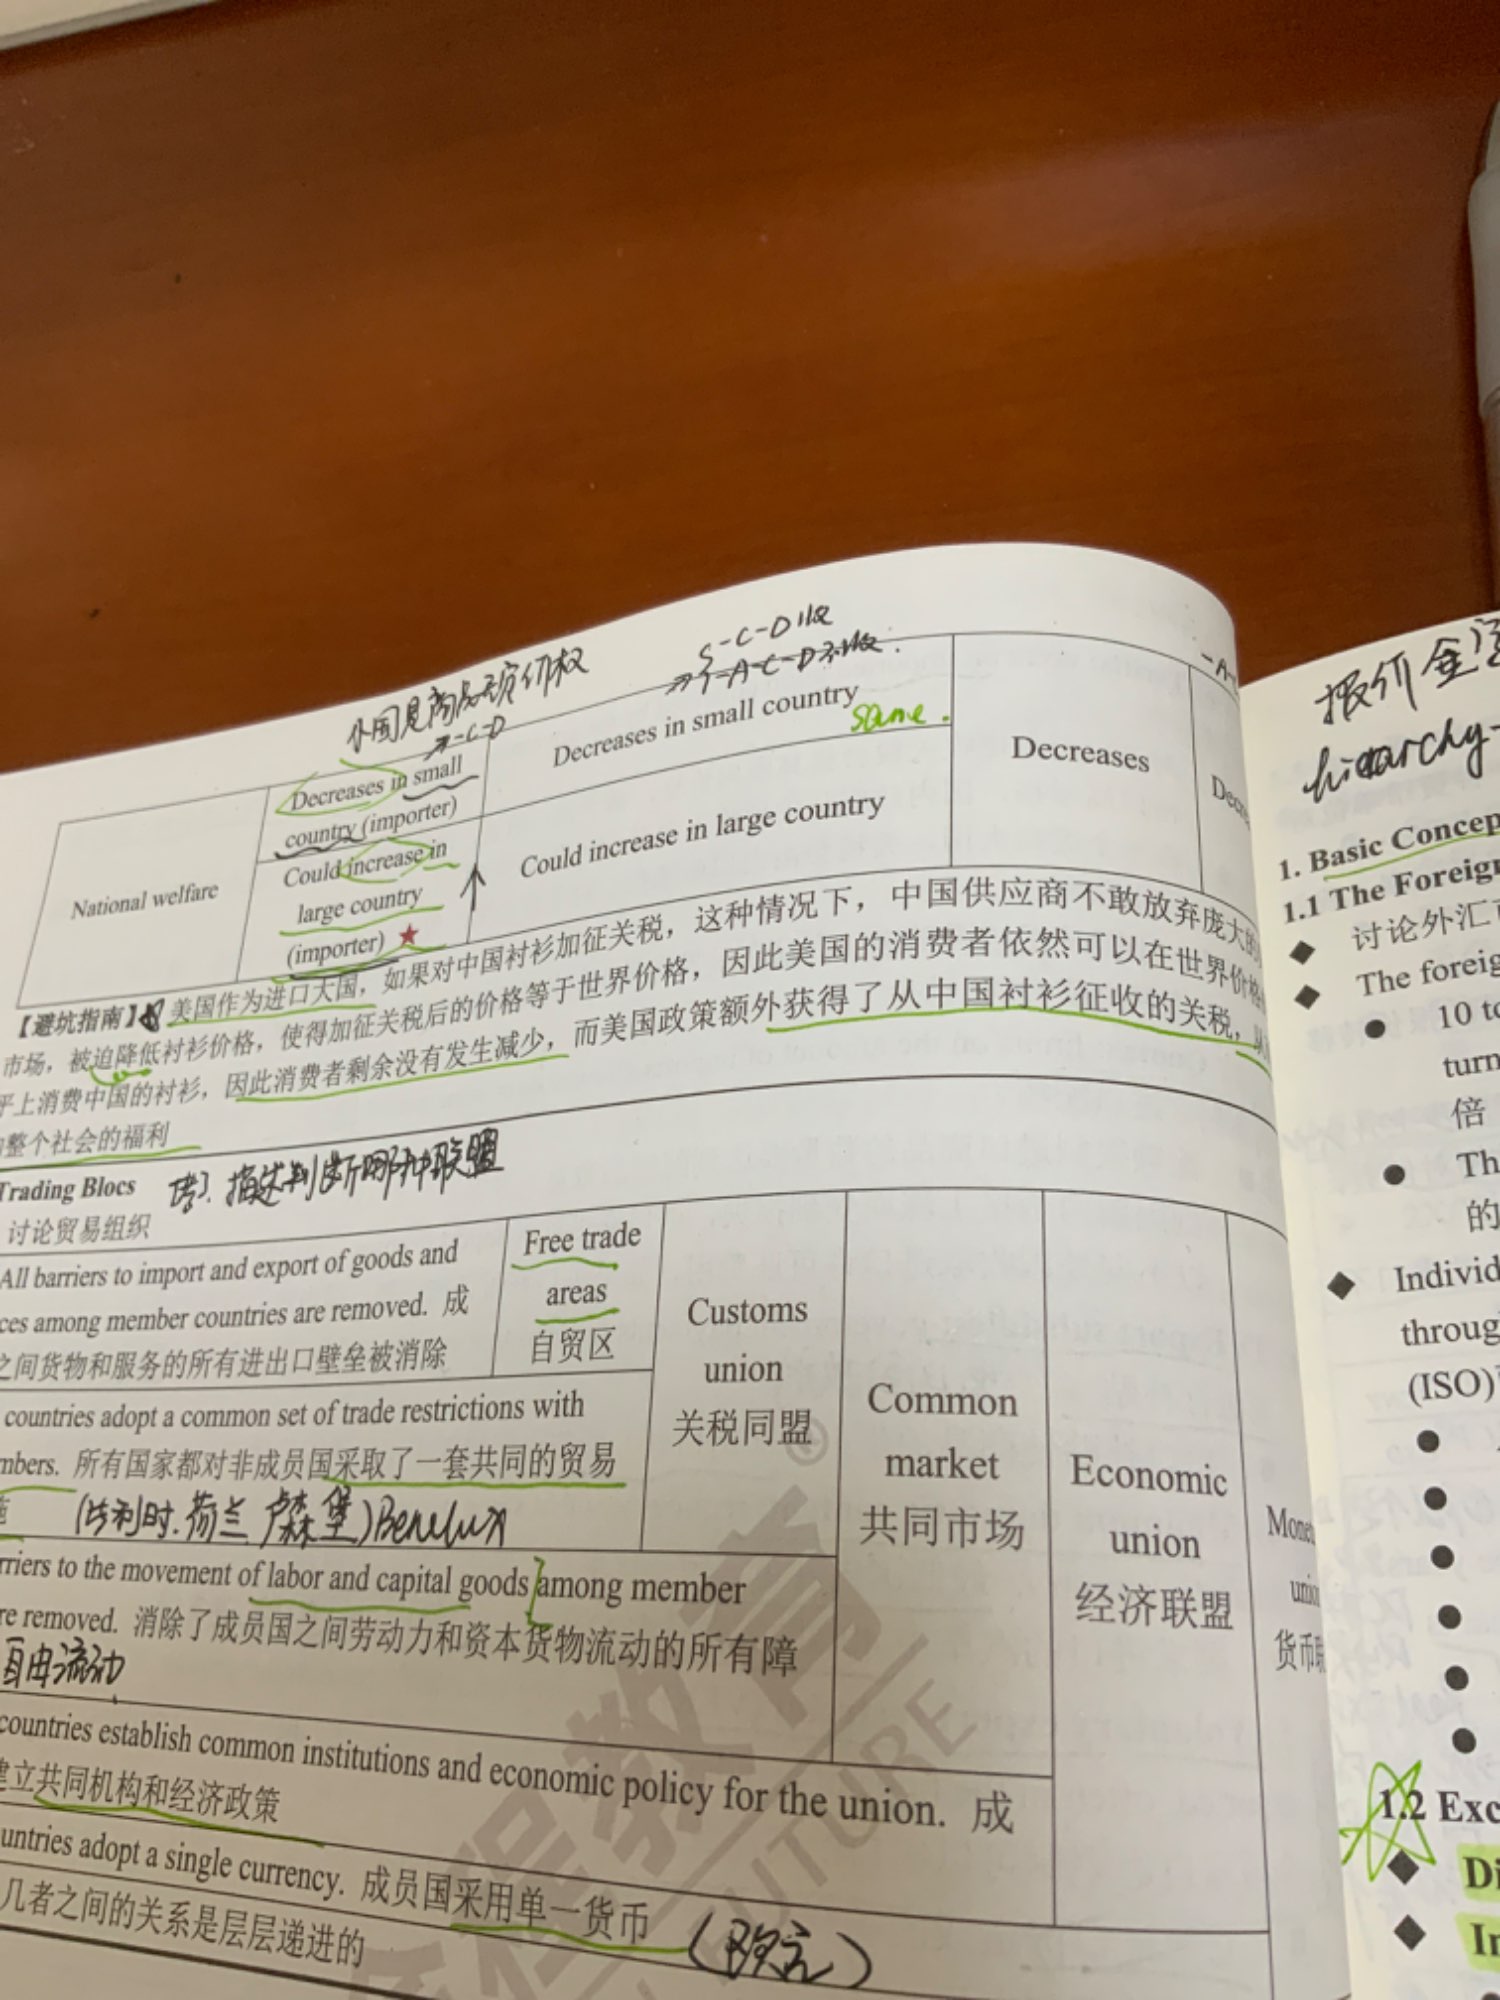 S-C-D
小国是商品无定价权
-C-D
National welfare
Decreases in small
country (importer)
Could increase in
large country
(importer)
Decreases in small country
same.
Could increase in large country
Decreases
【避坑指南】美国作为进口大国，如果对中国衬衫加征关税，这种情况下，中国供应商不敢放弃庞大的
市场，被迫降低衬衫价格，使得加征关税后的价格等于世界价格，因此美国的消费者依然可以在世界价格
平上消费中国的衬衫，因此消费者剩余没有发生减少，而美国政策额外获得了从中国衬衫征收的关税，
整个社会的福利
Trading Blocs
考：描述判断哪种联盟
讨论贸易组织
All barriers to import and export of goods and
ces among member countries are removed. 成
之间货物和服务的所有进出口壁垒被消除
Free trade
areas
自贸区
countries adopt a common set of trade restrictions with
mbers. 所有国家都对非成员国采取了一套共同的贸易
(比利时.荷兰 卢森堡)Benelux
Customs
union
关税同盟
rriers to the movement of labor and capital goods among member
re removed. 消除了成员国之间劳动力和资本货物流动的所有障
自由流动
Common
market
共同市场
countries establish common institutions and economic policy for the union. 成
建立共同机构和经济政策
Economic
union
经济联盟
untries adopt a single currency. 成员国采用单一货币
(欧元)
几者之间的关系是层层递进的
货币
程教育
FUTURE
报价
hierarchy
1. Basic Concep
1.1 The Foreign
讨论外汇
The foreig
10 to
turn
倍
Th
的
Individ
throug
(ISO)
1.2 Exc
Di
In